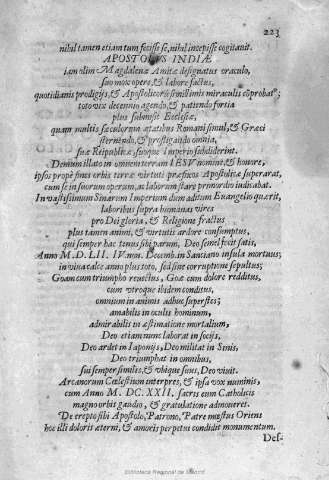 223
nihil tamen etiam tum fecisse se, nihil incepisse cogitanit.
APOSTOLVS INDIÆ
iam olim Magdalenæ Amitæ designatus oraculo,
suo mox opere, & labore factus,
quotidianis prodigijs, & Apostolicorũ simillimis miraculis cõprobat9;
toto vix decennio agendo, & patiendo fortia
plus submisit Ecclesiæ,
quam multis sæculorum ætatibus Romani simul, & Græci
sternendo, & profligando omnia,
suæ Reipublicæ suoque Imperio subdiderint.
Demum illato in omnem terram IESV nomine, & honore,
ipsos propè fines orbis terræ virtuti præfucos Apostolicæ superarat,
cum se in suorum operum, ac laborum stare primordio iudicabat.
In vastissimum Sinarum Imperium dum aditum Euangelio quærit,
laboribus supra humanas vires
pro Dei gloria, & Religione fractus
plus tamen animi, & virtutis ardore consumptus,
qui semper hac tenus sibi parum, Deo semel fecit satis,
Anno M.D.LII. IV. non. Decemb. in Sanciano insula mortuus;
in viua calce annus plus toto, sed sine corruptione sepultus;
Goam cum triumpho reuectus, Goæ cum dolore redditus,
cum vtroque ibidem conditus,
omnium in animis adhuc superstes;
amabilis in oculis hominum,
admirabilis in æstimatione mortalium,
Deo etiam nunc laborat in socijs,
Deo ardet in Iaponijs, Deo militat in Sinis,
Deo triumphat in omnibus,
sui semper similis, & vbique suus, Deo viuit.
Arcanorum Cœlestium interpres, & ipsa vox numinis,
cum Anno M.DC.XXII. sacris eum Catholicis
magno orbis gaudio, & gratulatione admoueret.
De erepto sibi Apostolo, Patrono, Patre mœstus Oriens
hoc illi doloris æterni, & amoris perpetuo condidit monumentum.
Des-
Biblioteca Regional de Madrid